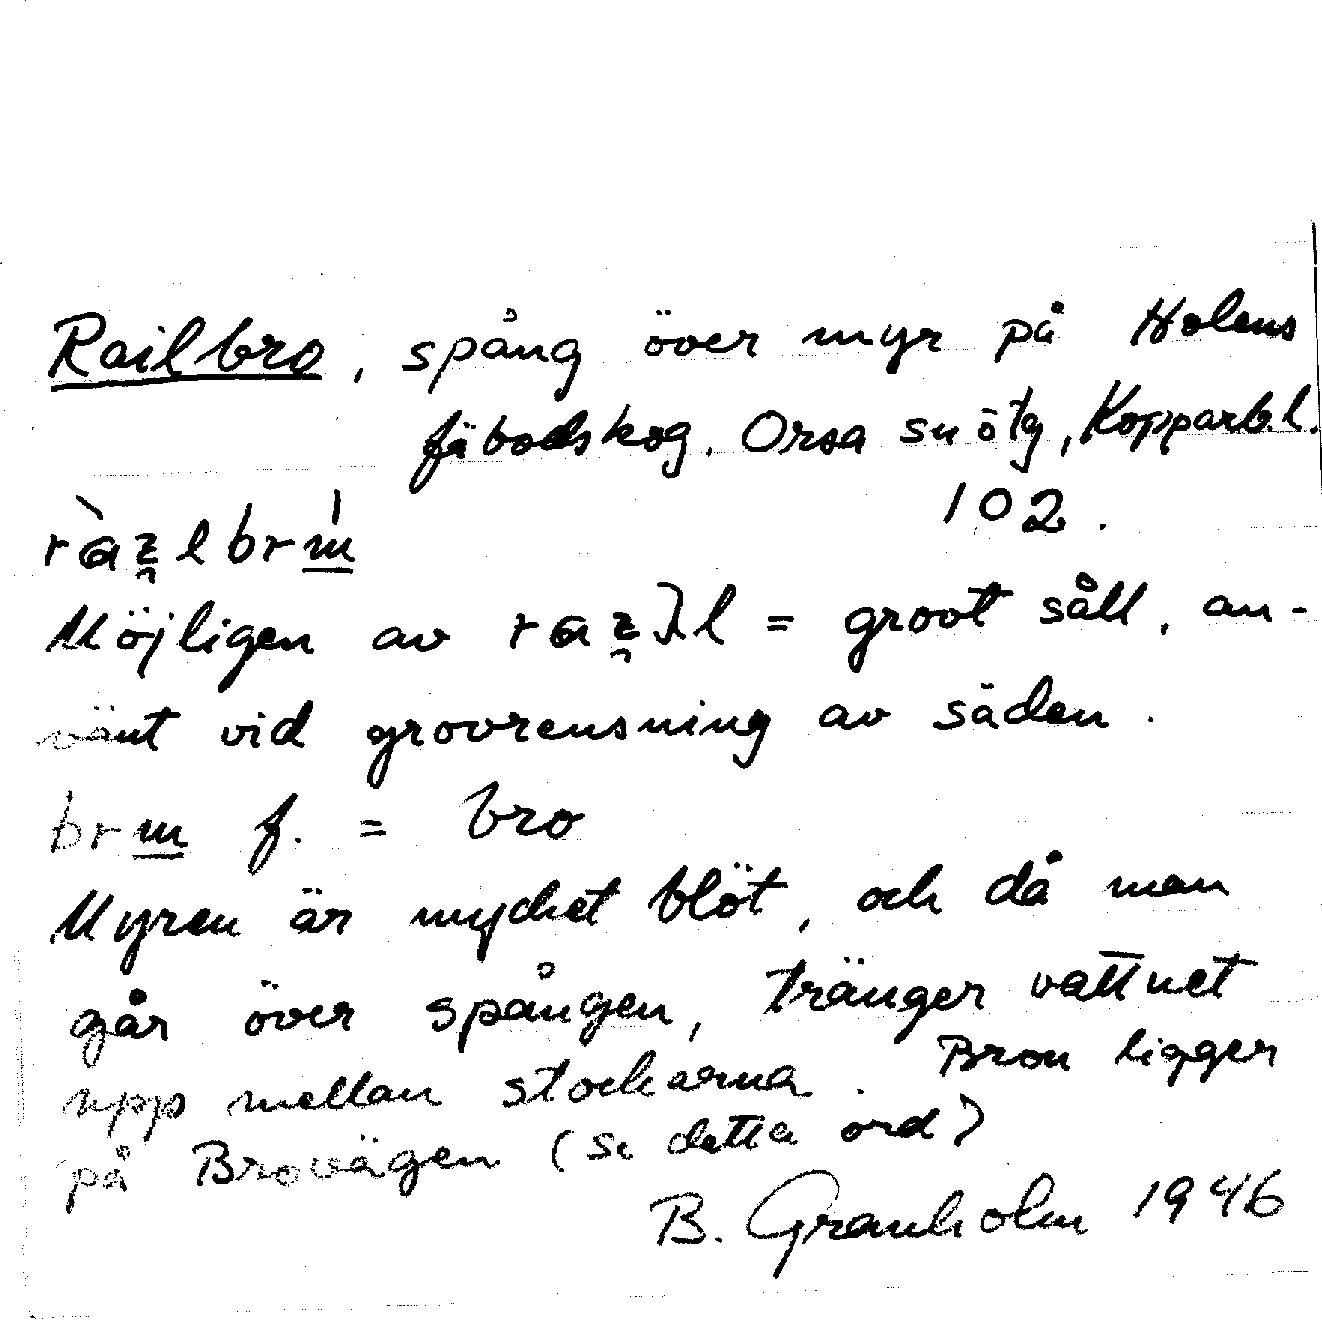 Railbro, spång över myr på Holens
fäbodskog. Orsa sn ötg, Kopparb.l.
102.
Möjligen av = grovt såll, an-
vänt vid grovrensning av säden.
f. = bro
Myren är mycket blöt, och då man
går över spången, tränger vattnet
upp mellan stockarna. Bron ligger
på Brovägen (se detta ord)
B. Granholm 1946